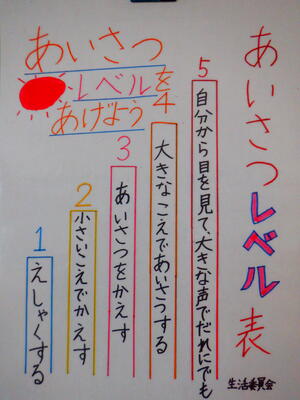 あいさつレベル表
あいさつ
レベルを
あげよう
5
自分から目を見て、大きな声でだれにでも
4
大きなこえであいさつする
3
あいさつをかえす
2
小さいこえでかえす
1
えしゃくする
生活委員会